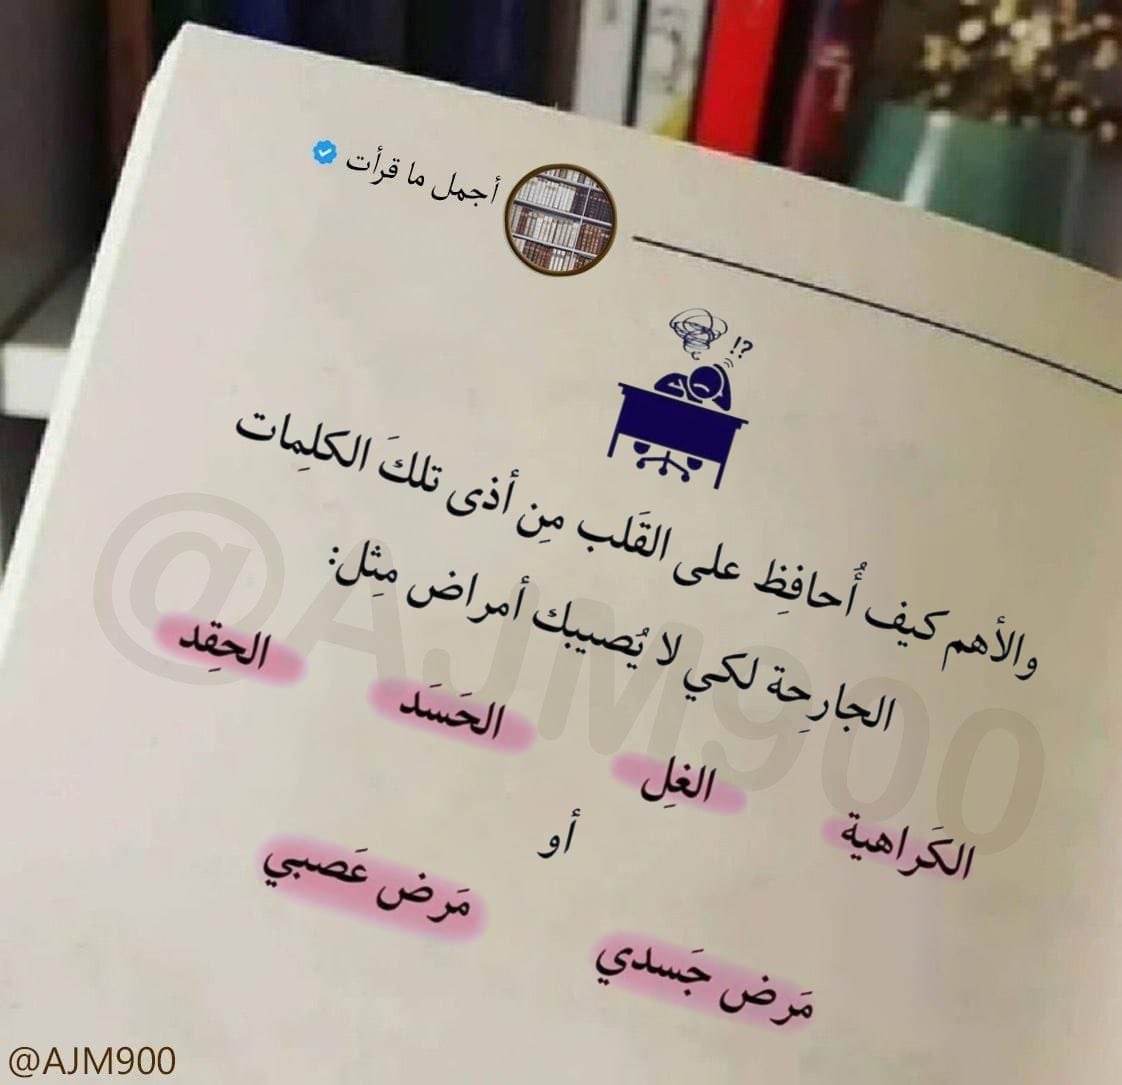 أجمل ما قرأت
!?
والأهم كيف أُحافِظ على القَلب مِن أذى تلكَ الكلِمات
الجارِحة لكي لا يُصيبك أمراض مِثل:
الكَراهية الغِل الحَسَد الحِقِد
أو
مَرض جَسدي مَرض عَصبي
@AJM900
@AJM900